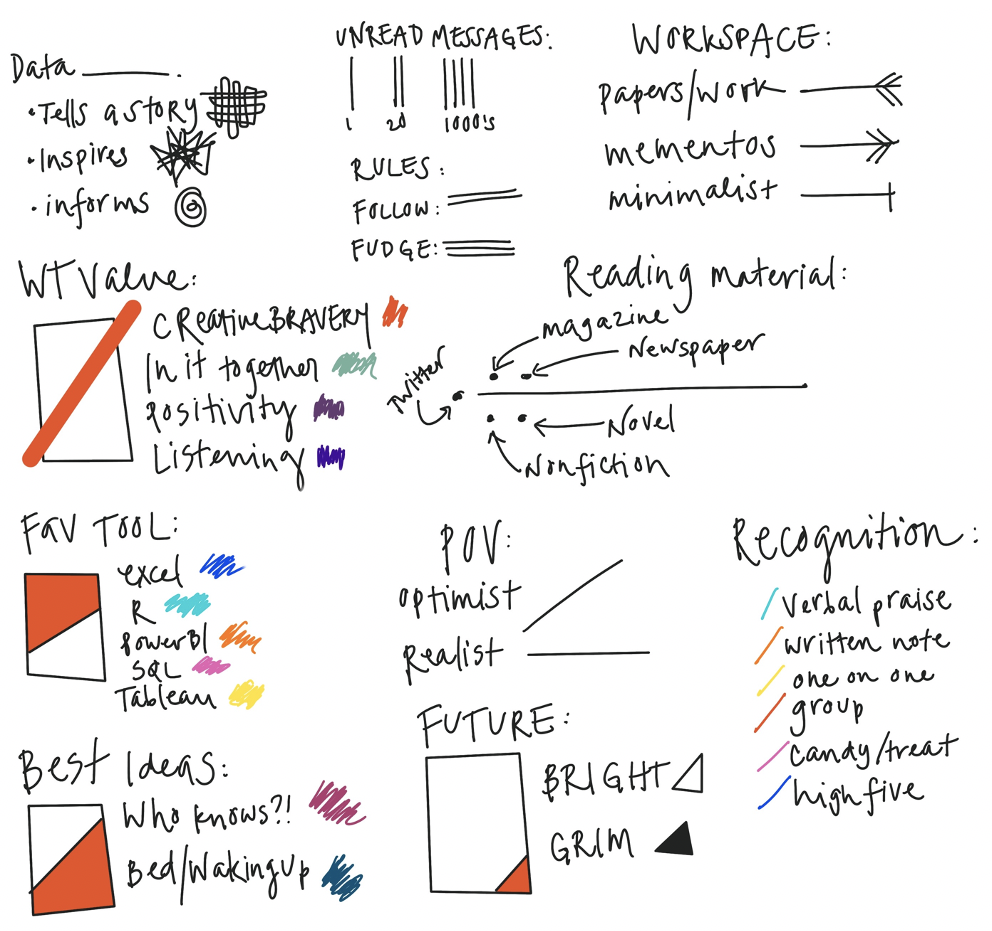 Data ______.
•Tells a story
•Inspires
•informs
UNREAD MESSAGES:
1 20 1000's
RULES:
FOLLOW:
FUDGE:
WORKSPACE:
papers/work
mementos
minimalist
WT Value:
CReative BRAVERY
In it together
positivity
Listening
Reading material:
magazine
Newspaper
Twitter
Novel
Nonfiction
Fav TOOL:
excel
R
PowerBI
SQL
Tableau
POV:
optimist
Realist
Recognition:
verbal praise
written note
one on one
group
candy/treat
high five
Best Ideas:
Who knows?!
Bed/Waking Up
FUTURE:
BRIGHT
GRIM